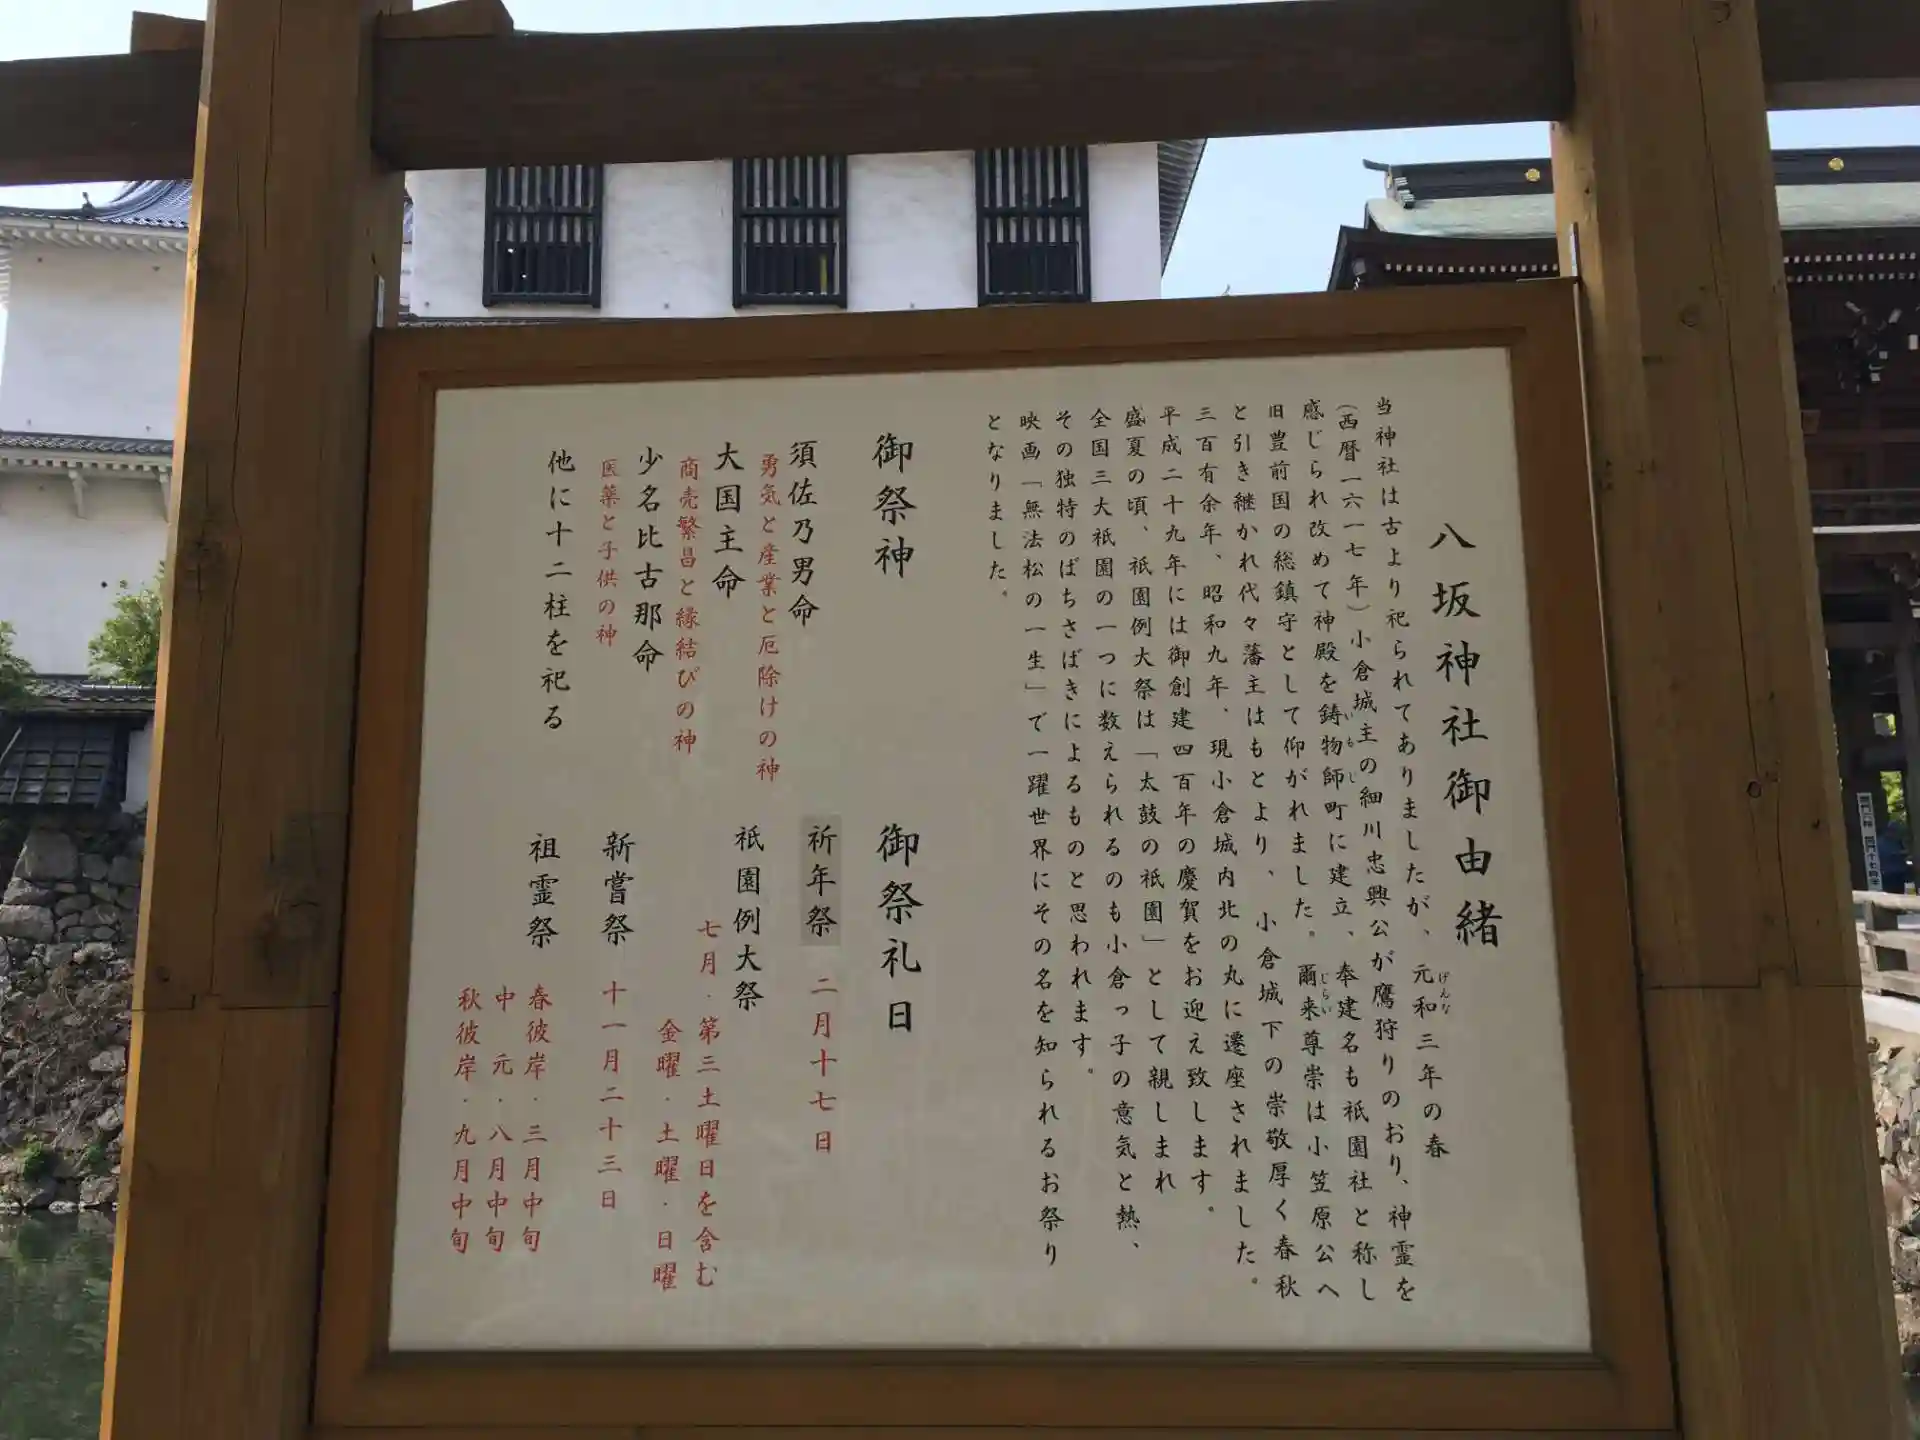 八坂神社御由緒
当神社は古より祀られてありましたが、元和三年の春
げんな
(西暦一六一七年)小倉城主の細川忠興公が鷹狩りのおり、神霊を
感じられ改めて神殿を鋳物師町に建立、奉建名も祇園社と称し
いもじ
旧豊前国の総鎮守として仰がれました。爾来尊崇は小笠原公へ
じらい
と引き継かれ代々藩主はもとより、小倉城下の崇敬厚く春秋
三百有余年、昭和九年、現小倉城内北の丸に遷座されました。
平成二十九年には御創建四百年の慶賀をお迎え致します。
盛夏の頃、祇園例大祭は「太鼓の祇園」として親しまれ
全国三大祇園の一つに数えられるのも小倉っ子の意気と熱、
その独特のばちさばきによるものと思われます。
映画「無法松の一生」で一躍世界にその名を知られるお祭り
となりました。
御祭神
須佐乃男命
勇気と産業と厄除けの神
大国主命
商売繁昌と縁結びの神
少名比古那命
医薬と子供の神
他に十二柱を祀る
御祭礼日
祈年祭 二月十七日
祇園例大祭
七月・第三土曜日を含む
金曜・土曜・日曜
新嘗祭 十一月二十三日
祖霊祭 春彼岸・三月中旬
中 元・八月中旬
秋彼岸・九月中旬